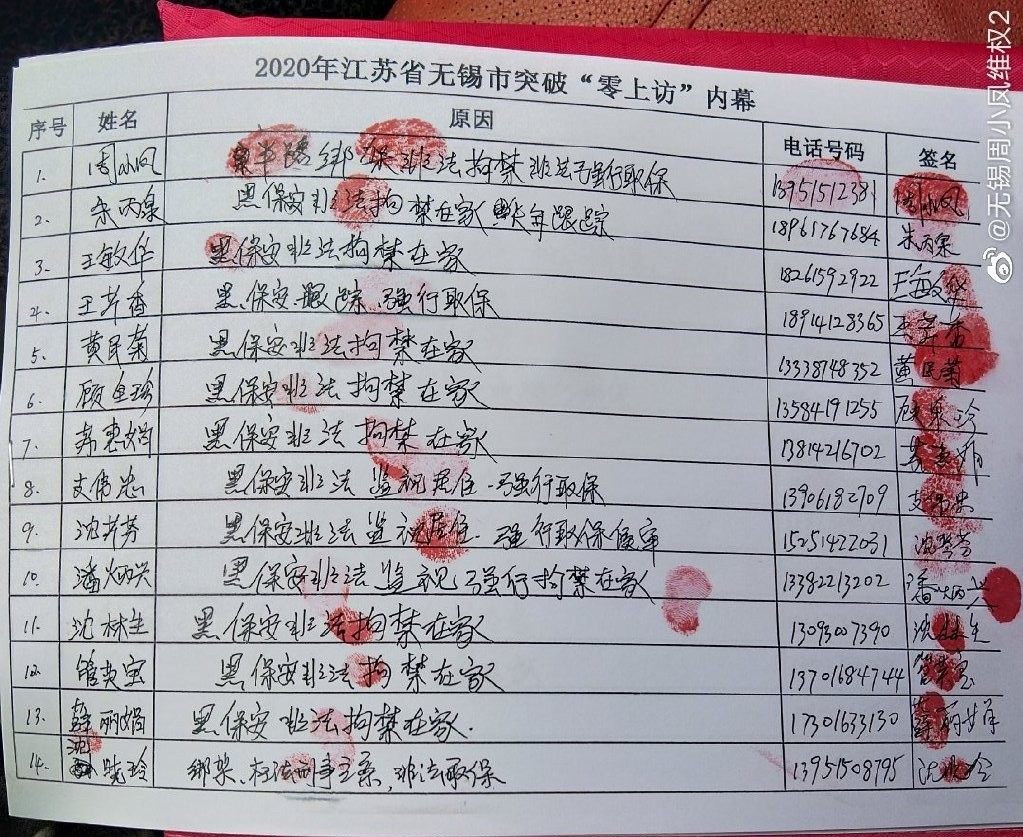 2020年江苏省无锡市突破“零上访”内幕
序号 姓名 原因 电话号码 签名
1. 周小凤 绑架 非法拘禁 非法强行取保 13951512381 周小凤
2. 朱丙泉 黑保安非法拘禁在家 跟踪 18961767684 朱丙泉
3. 王敏华 黑保安非法拘禁在家 18261592922 王敏华
4. 王芹香 黑保安跟踪、强行取保 18914128365 王芹香
5. 黄民菊 黑保安非法拘禁在家 13338748352 黄民菊
6. 黑保安非法拘禁在家 13584191255
7. 黑保安非法拘禁在家 13814216702
8. 支伟忠 黑保安非法监视居住、强行取保 13906182709 支伟忠
9. 黑保安非法监视居住、强行取保候审 15251422031
10. 潘炳兴 黑保安非法监视、强行拘禁在家 13382213202 潘炳兴
11. 沈林生 黑保安非法拘禁在家 13093007390 沈林生
12. 黑保安非法拘禁在家 13701684744
13. 薛丽娟 黑保安非法拘禁在家. 17301633130
14. 绑架、枉法刑事立案、非法取保 13951508795
@无锡周小凤维权2